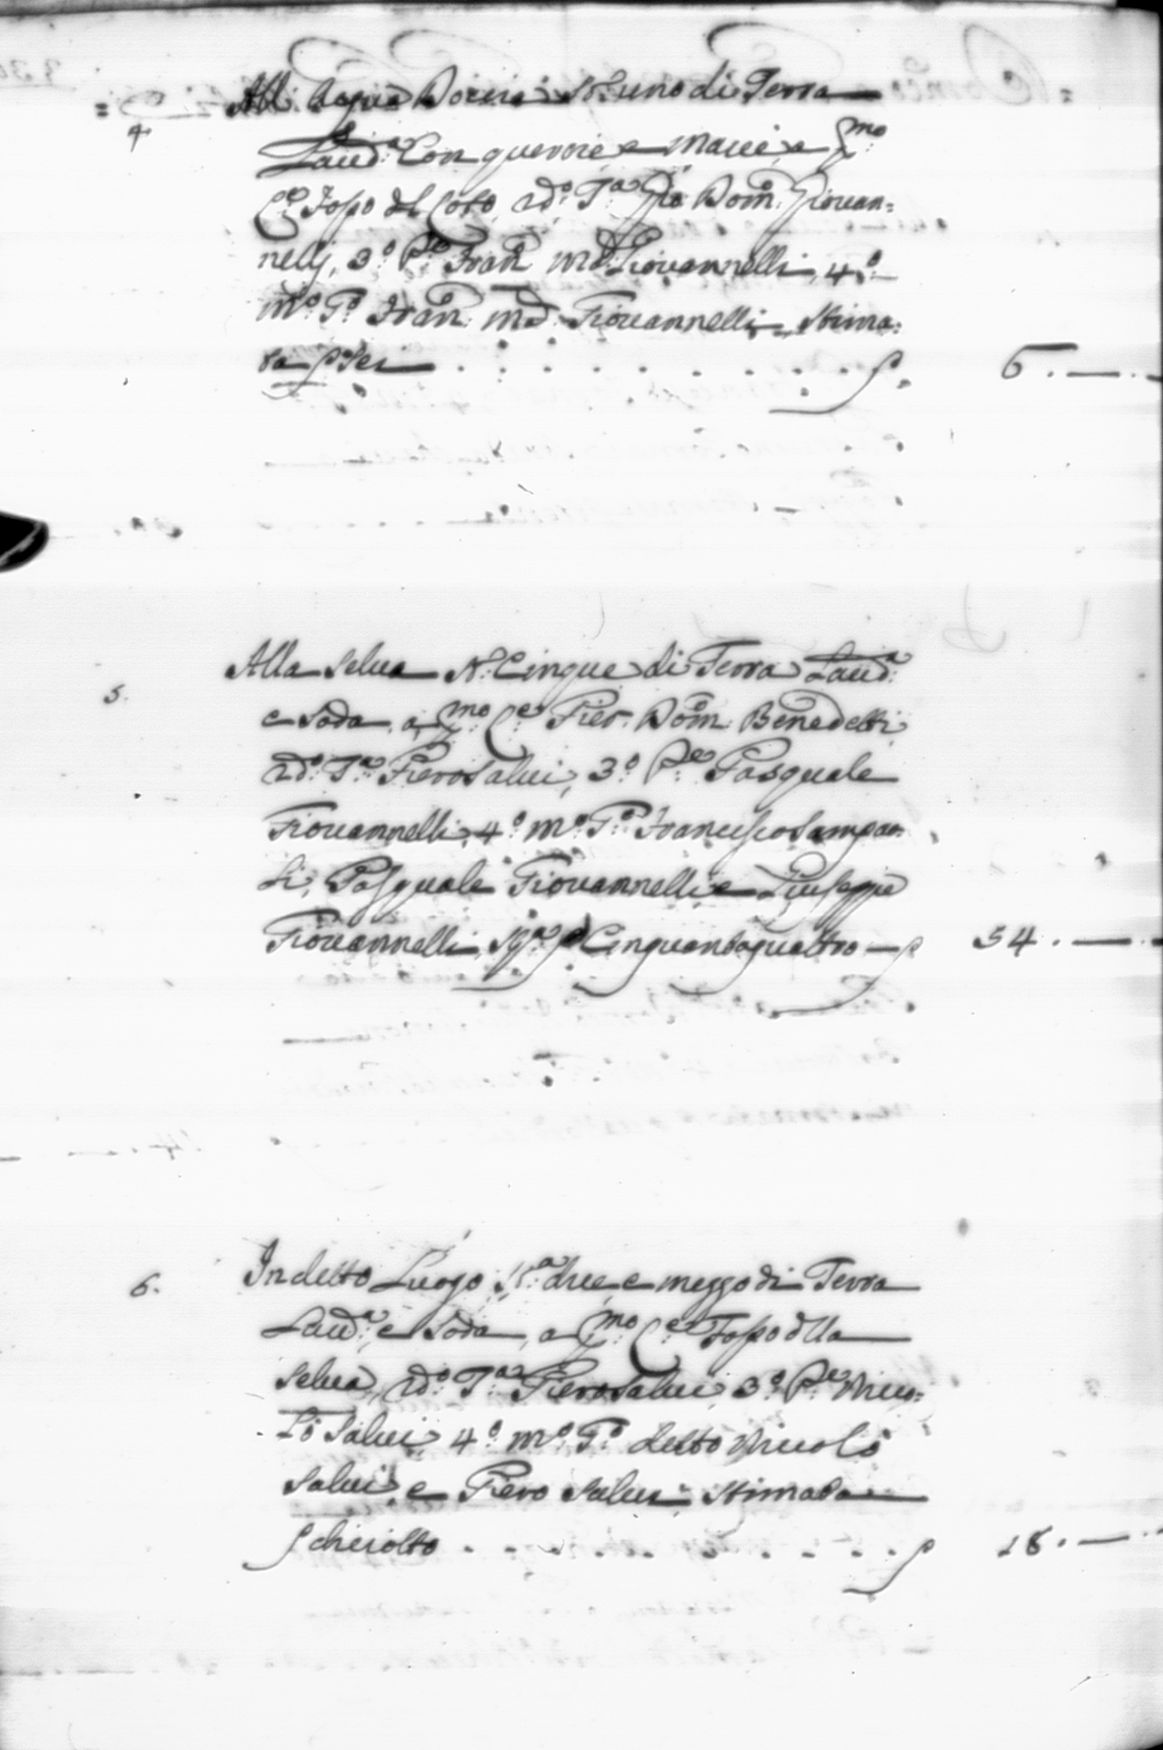 All' Acqua Docria St: uno di Terra
4. Laud:ª Con querce, e Macci, a p:mo
C:º Fosso del Coto, 2d:º T:ª Gio Dom: Giovan=
nelli, 3:º P:e Fran: M:ª Giovannelli, 4:º
M:º T:º Fran: M:ª Giovannelli, Stima=
ta ß Sei . . . . . . . . . ß 6. —
5. Alla Selva St: Cinque di Terra Laud:ª
e Soda a p:mo C:º Pier: Dom: Benedetti
2d:º T:ª Piero Salvi, 3:º P:e Pasquale
Giovannelli, 4:º M:º T:º Francesco Sampao=
li, Pasquale Giovannelli e Giuseppe
Giovannelli, St:ª ß Cinquantaquattro — ß 54. —
6. In detto Luogo, St:ª tre, e mezzo di Terra
Laud:ª, e Soda, a p:mo C:º Fosso della
Selva, 2d:º T:ª Piero Salvi, 3:º P:e Nico=
lò Salvi, 4:º M:º T:º detto Nicolò
Salvi e Piero Salvi Stimata
ß diciotto . . . . . . . . ß 18. —